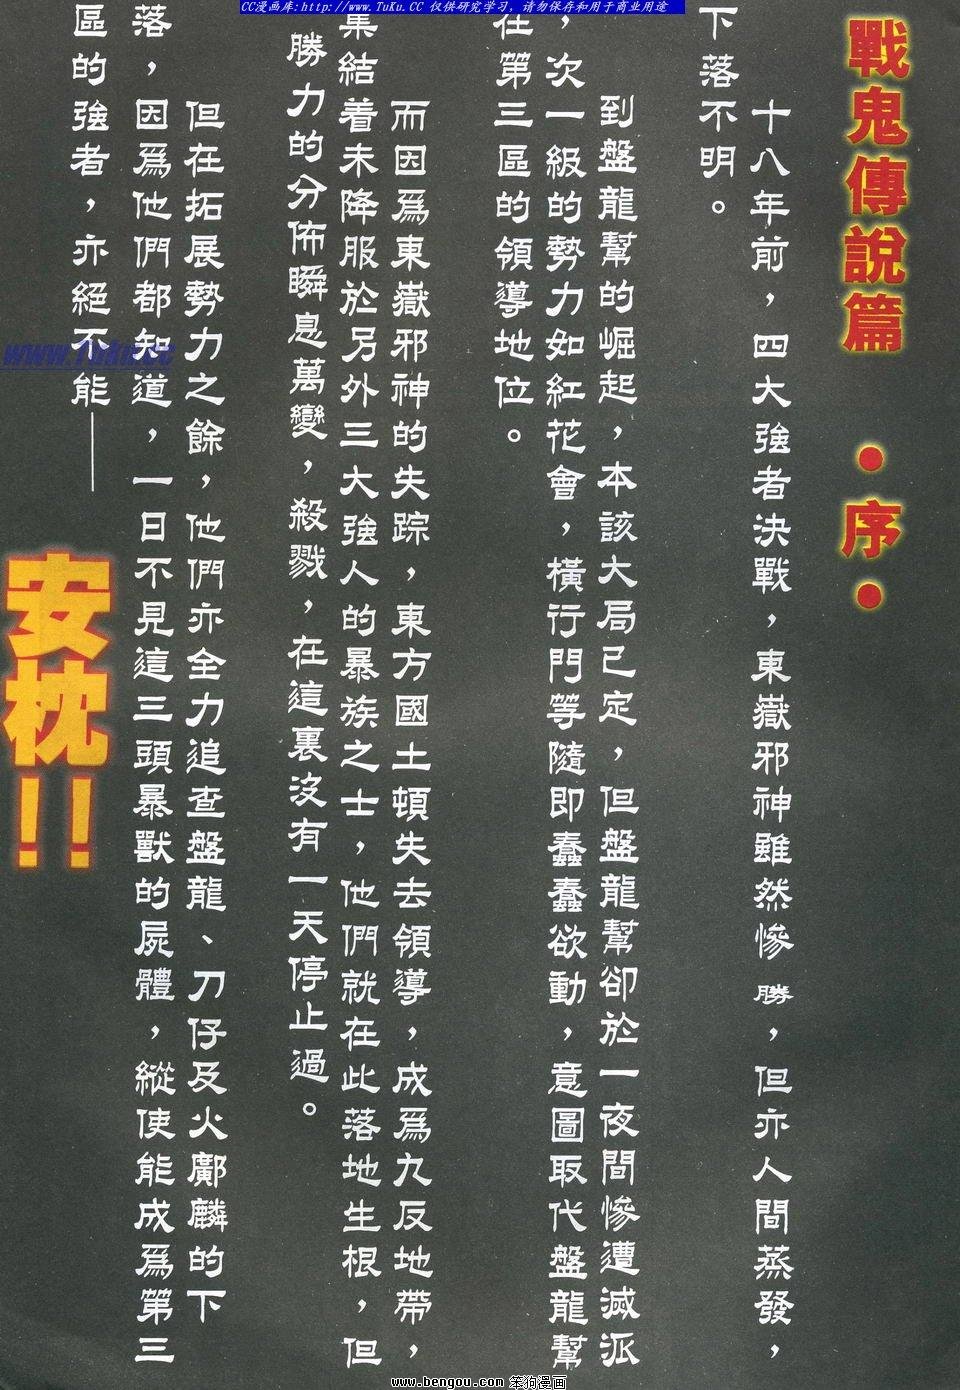 CC漫画库:http://www.TuKu.CC 仅供研究学习,请勿保存和用于商业用途
戰鬼傳說篇 •序•
十八年前，四大強者決戰，東嶽邪神雖然慘勝，但亦人間蒸發，
下落不明。
到盤龍幫的崛起，本該大局已定，但盤龍幫卻於一夜間慘遭滅派
，次一級的勢力如紅花會，橫行門等隨即蠢蠢欲動，意圖取代盤龍幫
在第三區的領導地位。
而因爲東嶽邪神的失踪，東方國土頓失去領導，成爲九反地帶，
集結着未降服於另外三大強人的暴族之士，他們就在此落地生根，但
勝力的分佈瞬息萬變，殺戮，在這裏沒有一天停止過。
但在拓展勢力之餘，他們亦全力追查盤龍、刀仔及火鄺麟的下
落，因爲他們都知道，一日不見這三頭暴獸的屍體，縱使能成爲第三
區的強者，亦絕不能——
安枕!!
www.TuKu.cc
www.bengou.com 笨狗漫画